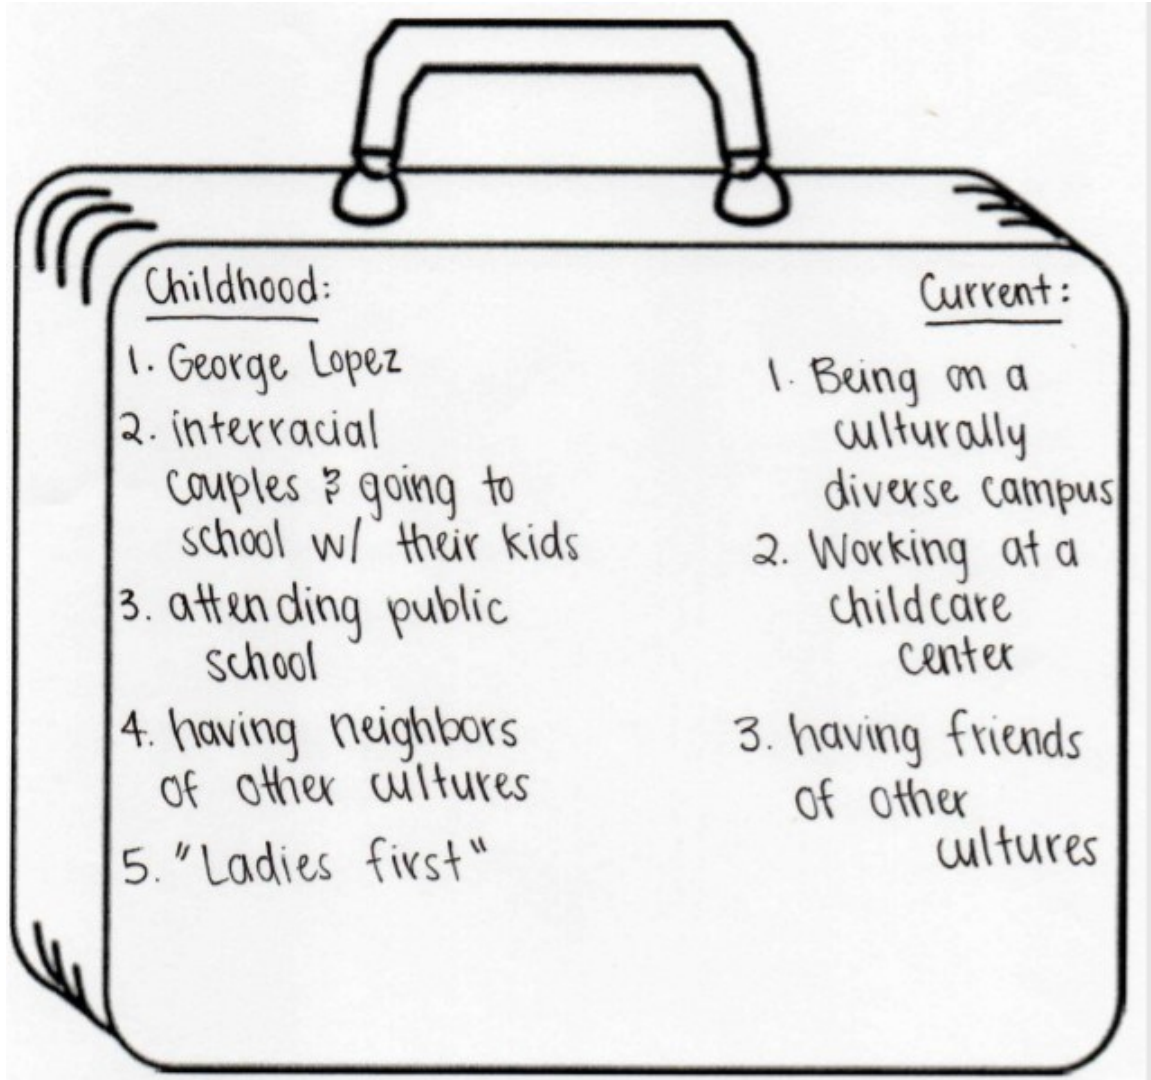 Childhood:
1. George Lopez
2. interracial
couples & going to
school w/ their kids
3. attending public
school
4. having neighbors
of other cultures
5. "Ladies first"
Current:
1. Being on a
culturally
diverse campus
2. Working at a
childcare
center
3. having friends
of other
cultures